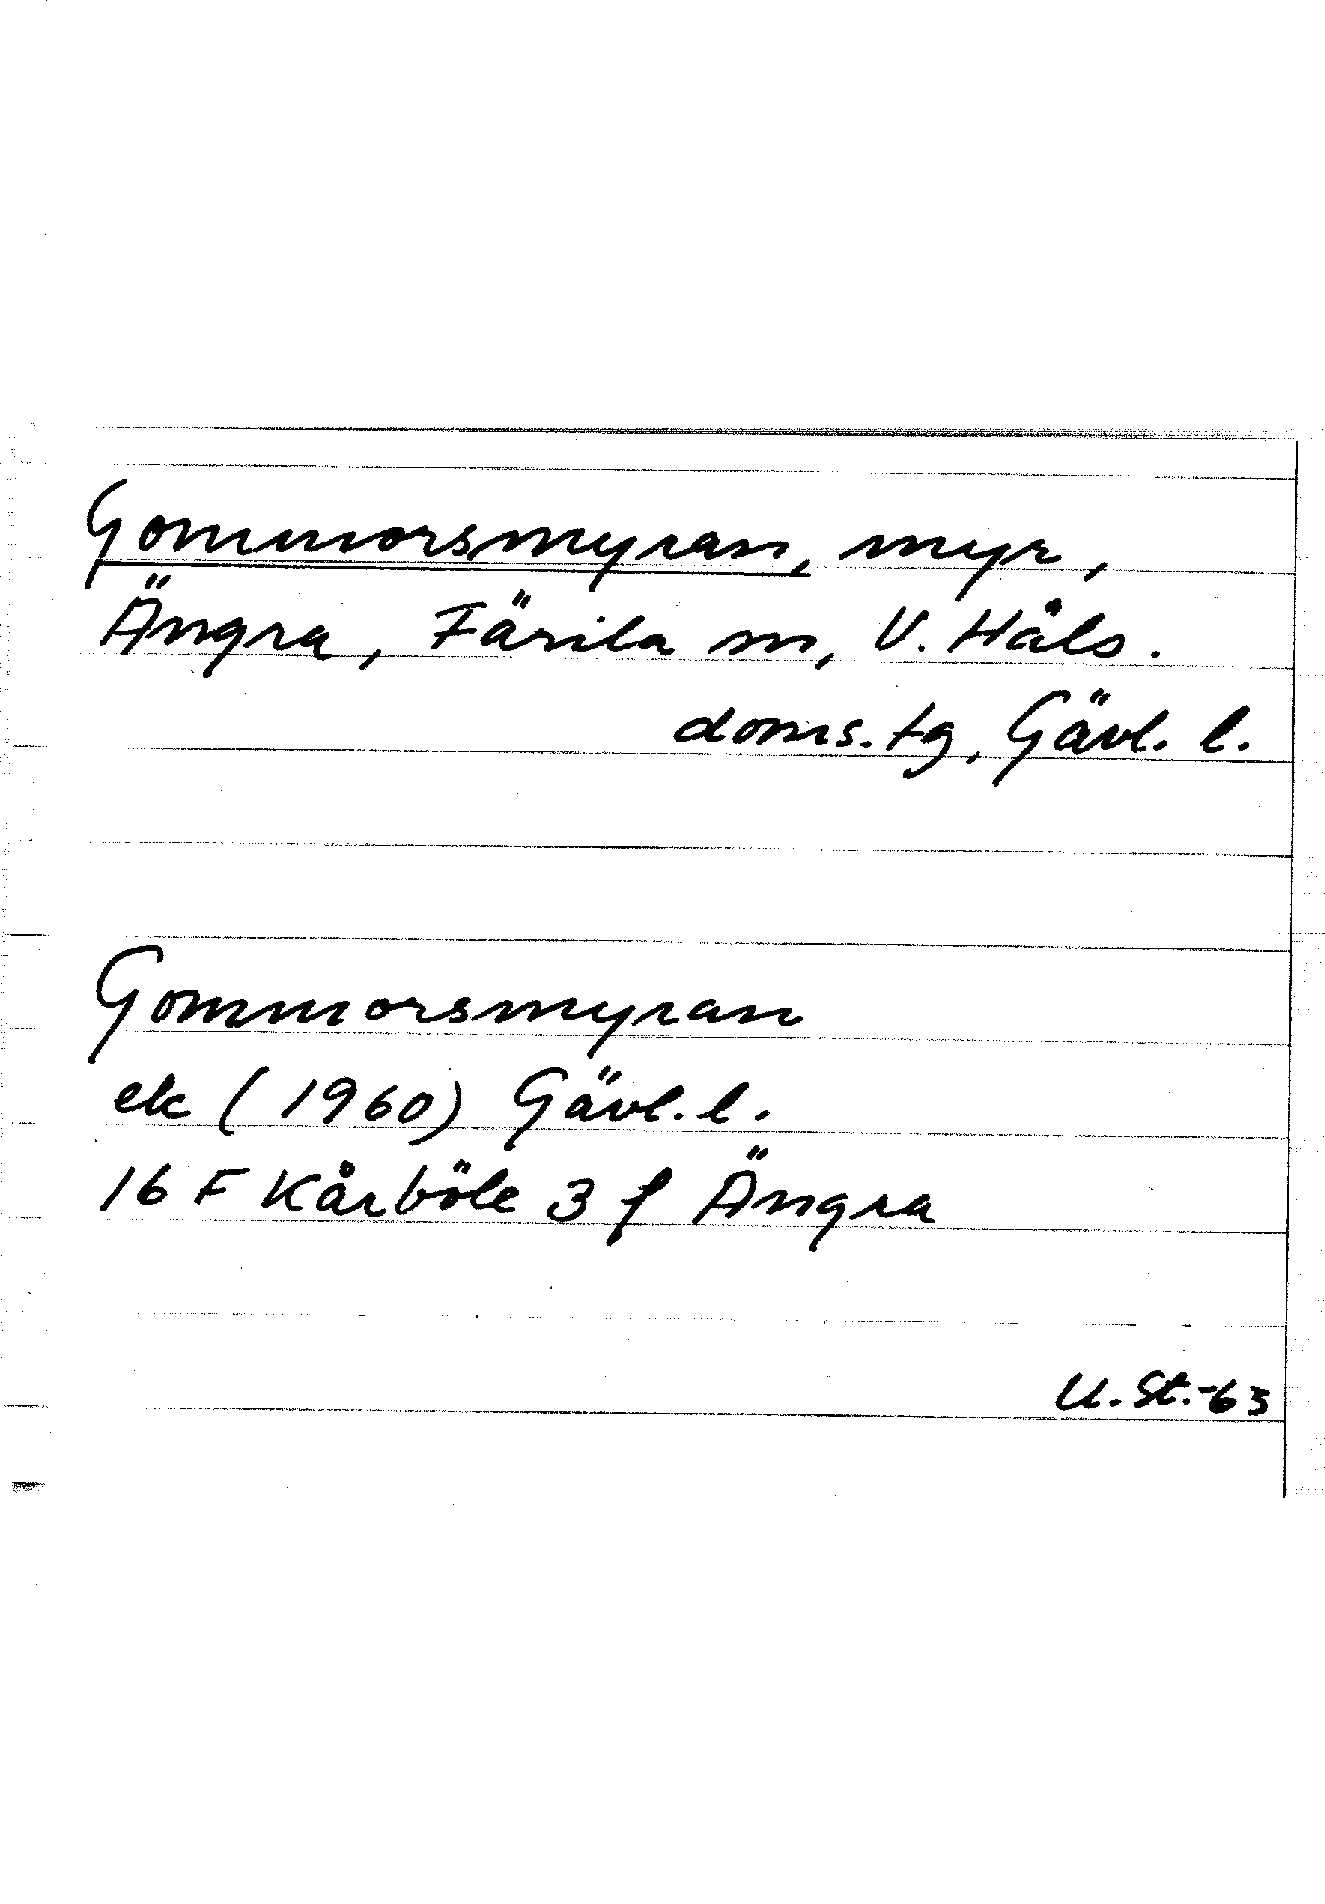 Gommorsmyran, myr,
Ängra, Färila sn, V. Häls.
doms.tg, Gävl. l.
Gommorsmyran
ek (1960) Gävl. l.
16 F Kårböle 3 f Ängra
U. St. -63